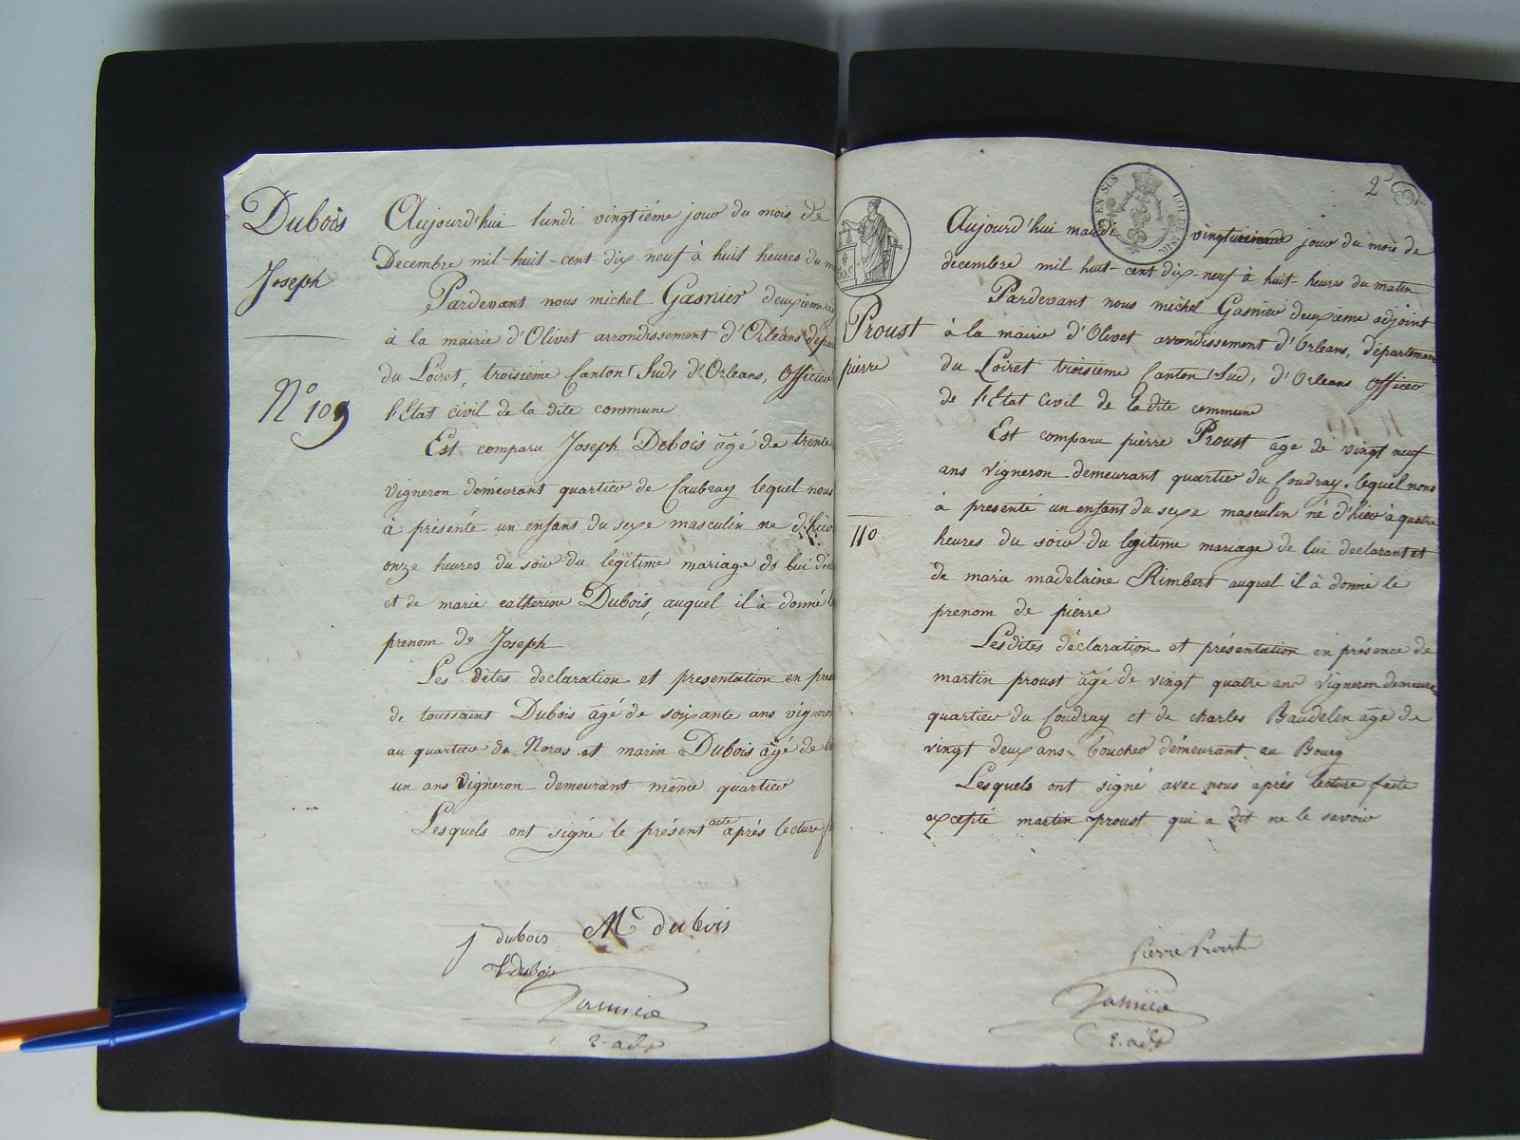 Dubois
Joseph
N° 109
Aujourd'hui lundi vingtiéme jour du mois de
Decembre mil-huit-cent dix neuf à huit heures du
Pardevant nous michel Gasnier deuxieme
à la mairie d'Olivet arrondissement d'Orléans
du Loiret, troisieme Canton Sud d'Orleans, Officier
l'Etat civil de la dite commune
Est comparu Joseph Dubois âgé de trente
vigneron demeurant quartier de Caubray lequel nous
à présenté un enfans du sexe masculin né d'hier
onze heures du soir du légitime mariage de lui
et de marie catherine Dubois, auquel il à donné
prenom de Joseph
Les dites declaration et presentation en
de toussaint Dubois âgé de soixante ans vigneron
au quartier de Noras et marin Dubois âgé de
un ans vigneron demeurant même quartier
Lesquels ont signé le présent acte après lecture
J dubois M dubois
t dubois
Gasnier
2. adj
2
EN SUS
Proust
pierre
110
Aujourd'hui mardi vingtunieme jour du mois de
decembre mil huit-cent dix-neuf à huit-heures du matin
Pardevant nous michel Gasnier deuxieme adjoint
à la mairie d'Olivet arrondissement d'Orleans, département
du Loiret troisieme Canton Sud, d'Orleans officier
de l'Etat Civil de la dite commune
Est comparu pierre Proust âge de vingt neuf
ans vigneron demeurant quartier du Coudray, lequel nous
à presenté un enfant du sexe masculin né d'hier à quatre
heures du soir du legitime mariage de lui declarant et
de marie madelaine Rimbert auquel il à donné le
prenom de pierre
Lesdites déclaration et présentation en présence de
martin proust âgé de vingt quatre ans vigneron demeure
quartier du Coudray et de charles Baudelin âge de
vingt deux ans boucher démeurant au Bourg
Lesquels ont signé avec nous après lecture faite
excepté martin proust qui a dit ne le savoir
Pierre Proust
Gasnier
2. adj